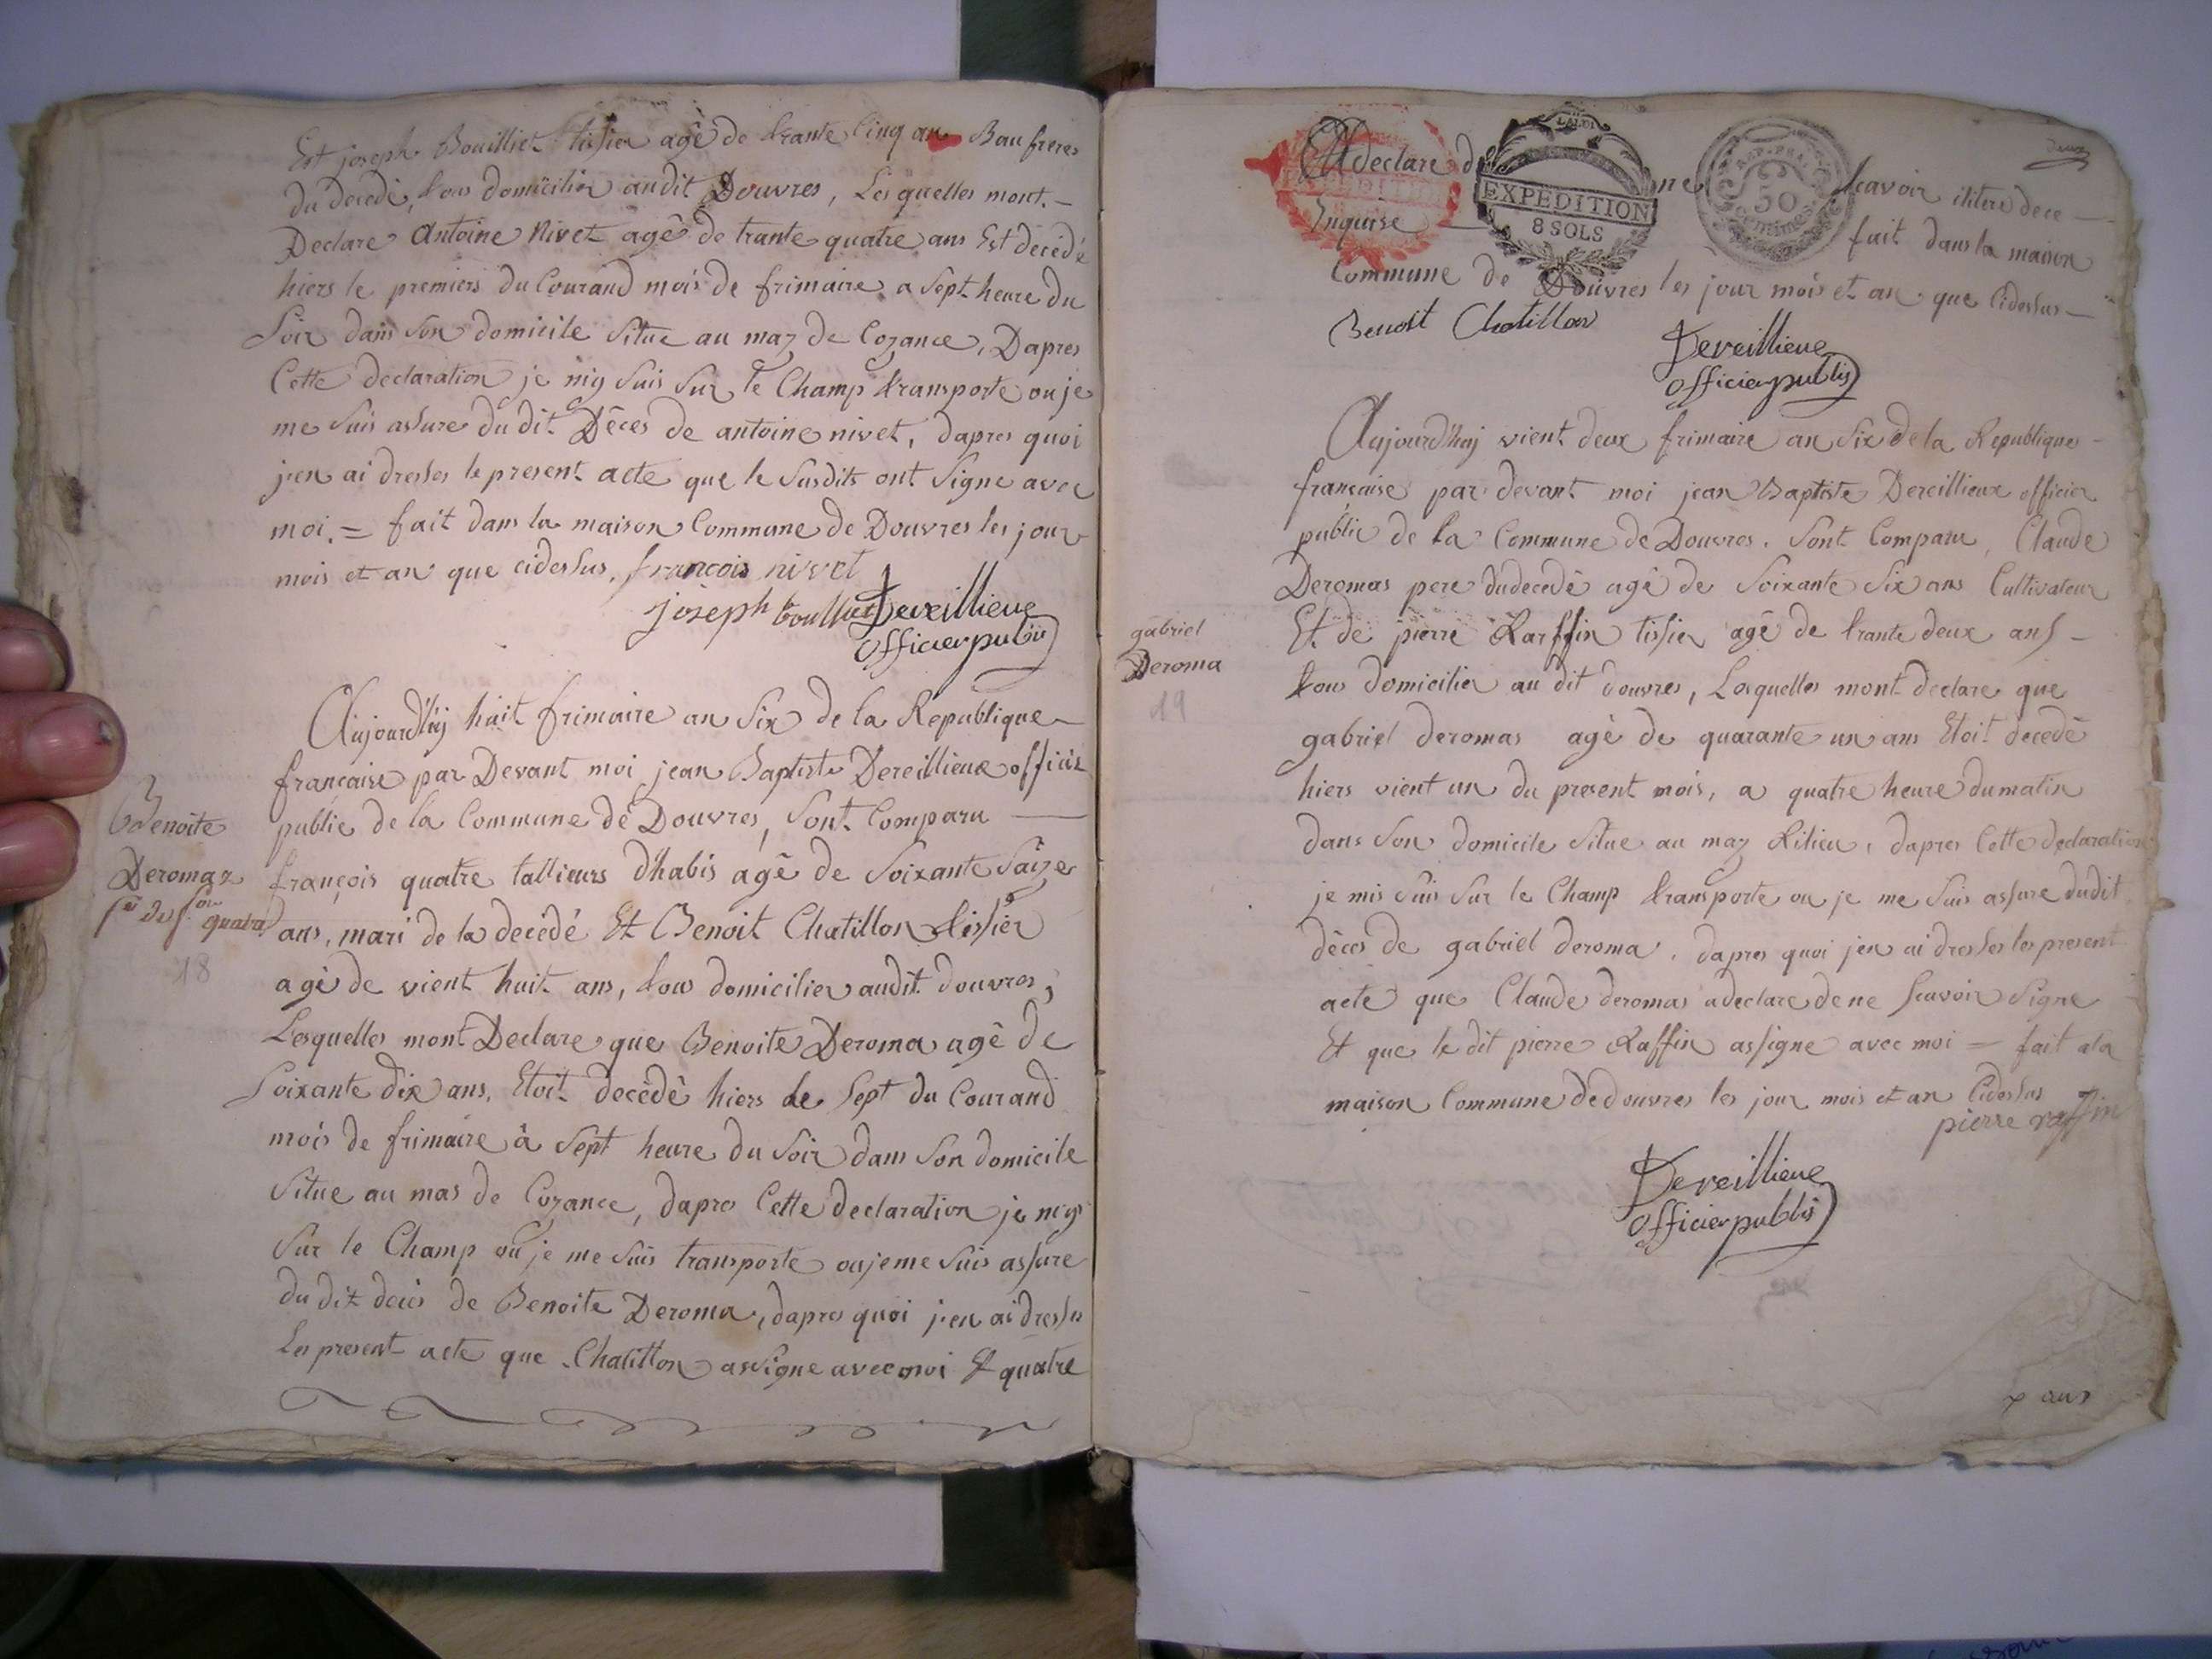 Est joseph Bouilliet tissier agê de trante Cinq ans Bau freres
du decedé, tous domicilier audit Douvres, Lesquelles mont. —
Declare Antoine Nivet agê de trante quatre ans Est decedé
hiers le premiers du Courand mois de frimaire a Sept heure du
Soir dans Son domicile Situe au maz de Cozance, Dapres
Cette declaration je my Suis Sur le Champ transporte ou je
me Suis assure du dit Dêces de antoine nivet, dapres quoi
jen ai dresses le present acte que le Susdits ont Signe avec
moi. = fait dans la maison Commune de Douvres les jour
mois et an que cidessus. françois nivet
joseph boulliet Deveilliene
officier public
Aujourd'huj huit frimaire an Six de la Republique —
française par Devant moi jean Baptiste Dereillieux officier
public de la Commune de Douvres, Sont Comparu —
françois quatre tallieurs d'habis agê de Soixante Saize
ans, mari de la decédé Et Benoit Chatillon tissier
agê de vient huit ans, tous domicilier audit douvres,
Lesquelles mont Declare que Benoite Deroma agê de
Soixante dix ans, Etoit decêdê hiers le Sept du Courand
mois de frimaire à Sept heure du Soir dans Son domicile
Situe au mas de Cozance, dapres Cette declaration je my
Sur le Champ ou je me Suis transporte ou je me Suis assure
du dit decès de Benoite Deroma, dapres quoi jen ai dresses
Les present acte que Chatillon assigne avec moi Et quatre
Benoite
Deromaz
fe de f. quatre
18
A declare de ne Scavoir
Inquise fait dans la maison
Commune de Douvres les jour mois et an que Cidessus —
EXPEDITION
8 SOLS
50
centimes
Benoit Chatillon
Deveilliene
officier public
Aujourd'huj vient deux frimaire an Six de la Republique -
française par devant moi jean Baptiste Dereillieux officier
public de la Commune de Douvres. Sont Comparu, Claude
Deromas pere du decedê agê de Soixante Six ans Cultivateur
Et de pierre Raffin tissier agê de trante deux ans —
tous domicilier au dit douvres, Lesquelles mont declare que
gabriel deromas agê de quarante un ans Etoit decedê
hiers vient un du present mois, a quatre heure du matin
dans Son domicile Situe au maz Rilieu, dapres Cette declaration
je mis Suis Sur le Champ transporte ou je me Suis assure du dit
dêces de gabriel deroma, dapres quoi jen ai dresses les present
acte que Claude deromas a declare de ne Scavoir Signe
Et que le dit pierre Raffin assigne avec moi = fait a la
maison Commune de douvres les jour mois et an Cidessus
pierre raffin
Deveilliene
officier public
gabriel
Deroma
19